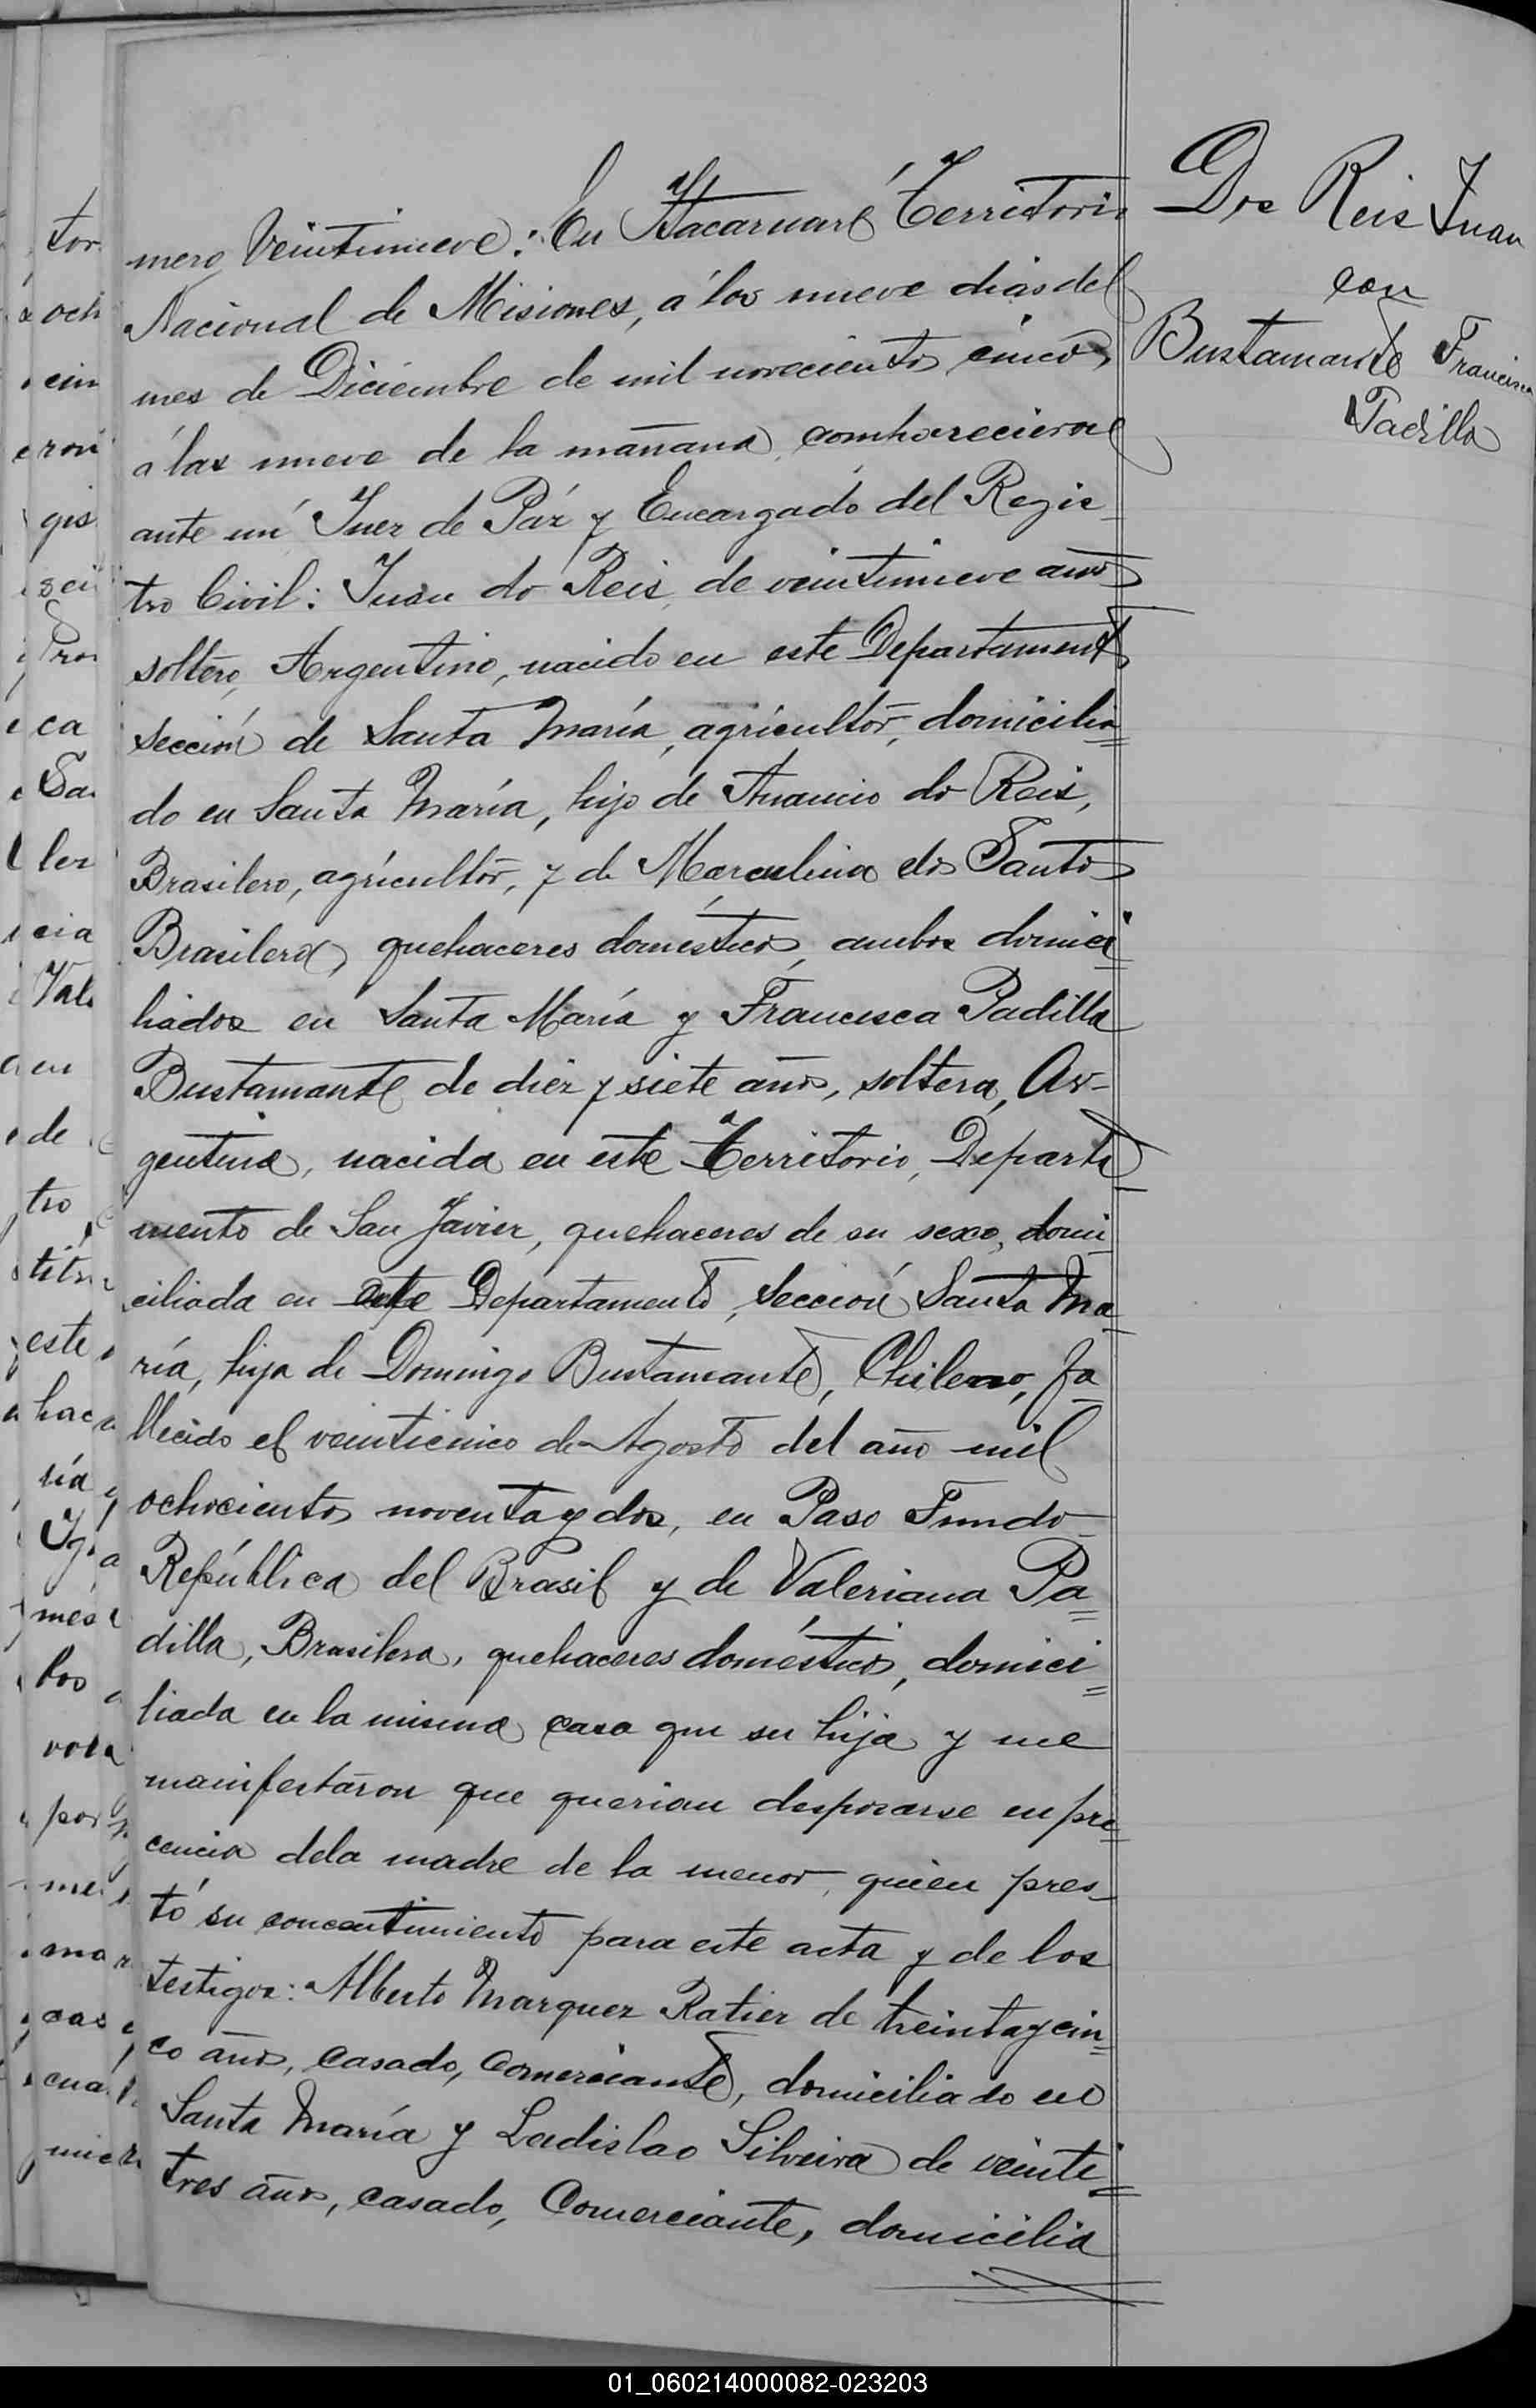 mero Veintinueve: En Itacaruaré Territorio
Nacional de Misiones, á los nueve dias del
mes de Diciembre de mil novecientos cinco,
á las nueve de la mañana, comparecieron
ante mí Juez de Páz y Encargado del Regis-
tro Civil: Juan do Reis, de veintinueve años
soltero, Argentino, nacido en este Departamento
Sección de Santa María, agricultor, domicilia=
do en Santa María, hijo de Anancio do Reis,
Brasilero, agricultor, y de Marculina dos Santos
Brasilera, quehaceres domésticos, ambos domici=
liados en Santa María y Francisca Padilla
Bustamante de diez y siete años, soltera, Ar-
gentina, nacida en este Territorio, Departa-
mento de San Javier, quehaceres de su sexo, domi-
ciliada en este Departamento, Sección Santa Ma-
ría, hija de Domingo Bustamante, Chileno, fa-
llecido el veinticinco de Agosto del año mil
ochocientos noventa y dos, en Paso Fundo-
República del Brasil y de Valeriana Pa=
dilla, Brasilera, quehaceres domésticos, domici=
liada en la misma casa que su hija y me
manifestaron que querian desposarse en pre=
cencia dela madre de la menor, quien pres-
tó su concentimiento para este acta y de los
testigos: Alberto Marquez Ratier de treinta y cin=
co años, casado, Comerciante, domiciliado en
Santa María y Ladislao Silveira de veinti=
tres años, casado, Comerciante, domicilia
Dos Reis Juan
con
Bustamante Francisca
Padilla
tor
och
cin
eron
gis
sei
ca
Sa
ler
cia
en
de
tro
este
hac
ría
Ig
més
los
por
mar
cas
cua
01_060214000082-023203